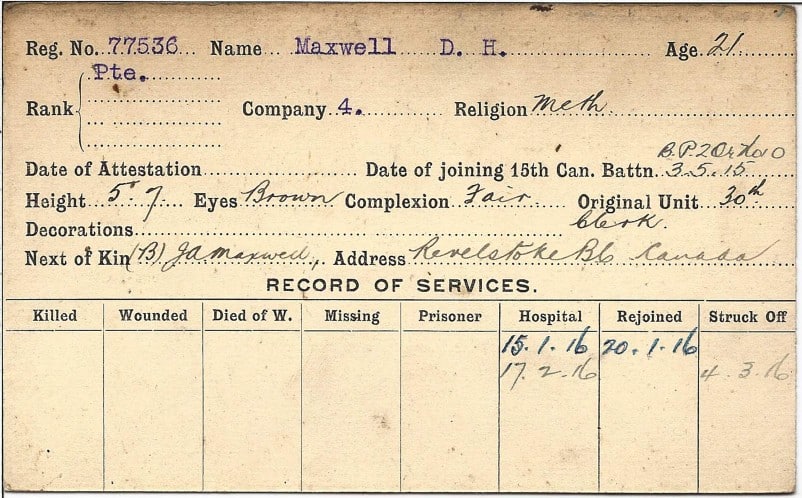 Reg. No. 77536 Name Maxwell D. H. Age 21
Pte.
Rank Company 4. Religion Meth.
B.P. 2
Date of Attestation Date of joining 15th Can. Battn. 3.5.15
Height 5' 7. Eyes Brown Complexion Fair. Original Unit 30th
Decorations Clerk.
Next of Kin (B) J A Maxwell, Address Revelstoke BC Canada
RECORD OF SERVICES.
Killed Wounded Died of W. Missing Prisoner Hospital Rejoined Struck Off
15.1.16 20.1.16
17.2.16 4.3.16